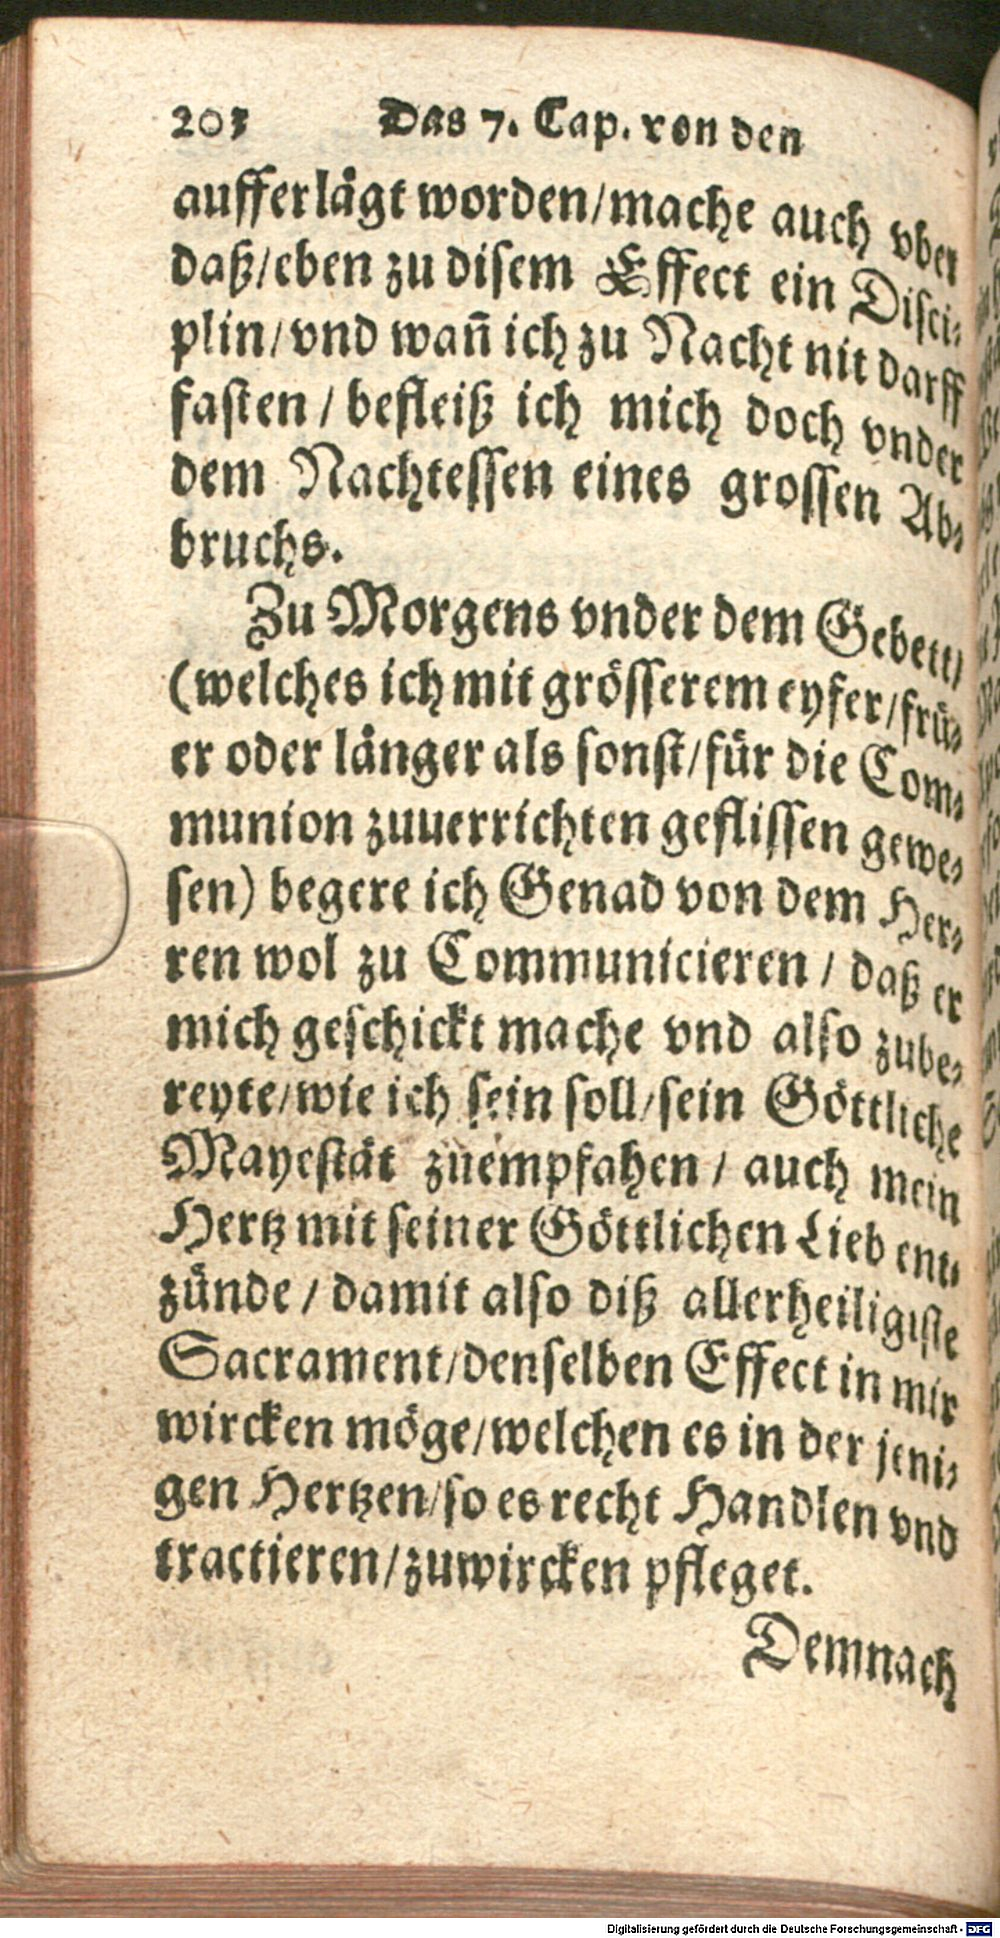 203 Das 7. Cap. von den
aufferlågt worden/mache auch vber
daß/eben zu disem Effect ein Disci⸗
plin/vnd wañ ich zu Nacht nit darff
fasten / befleiß ich mich doch vnder
dem Nachtessen eines grossen Ab⸗
bruchs.
Zu Morgens vnder dem Gebett/
(welches ich mit grösserem eyfer/frü⸗
er oder långer als sonst/für die Com⸗
munion zuuerrichten geflissen gewe⸗
sen) begere ich Genad von dem Her⸗
ren wol zu Communicieren / daß er
mich geschickt mache vnd also zube⸗
reyte/wie ich sein soll/sein Göttliche
Mayestät zuempfahen / auch mein
Hertz mit seiner Göttlichen Lieb ent⸗
zünde / damit also diß allerheiligiste
Sacrament/denselben Effect in mir
wircken möge/welchen es in der jeni⸗
gen Hertzen/so es recht Handlen vnd
tractieren/zuwircken pfleget.
Demnach
Digitalisierung gefördert durch die Deutsche Forschungsgemeinschaft - DFG